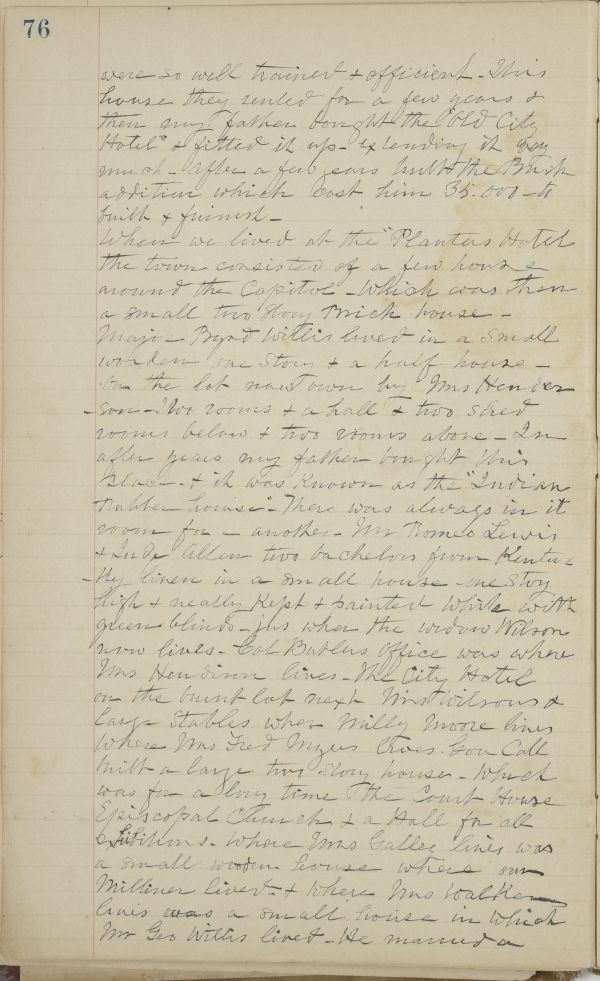 76
were so well trained & efficient - This
house they rented for a few years &
then my father bought the "Old City
Hotel" & fitted it up - extending it very
much - after a few years built the Brick
addition which cost him 35.000 - to
built & furnish -
When we lived at the "Planters Hotel
the town consisted of a few house
around the Capitol - Which was then
a small two Story Brick house -
Major Byrd Willis lived in a small
wooden one Story & a half house -
on the lot now own by Mrs Hender
- son - Two rooms & a hall & two shed
rooms below & two rooms above - In
after years my father bought this
place - & it was Known as the "Indian
Rubber house" - There was always in it
room for - another - Mr Romeo Lewis
& Jude Allen two bachelors from Kentuc
- ky liven in a small house one Story
high & neatly Kept & painted White with
green blinds - jus wher the widow Wilson
now lives - Col Butlers Office was where
Mrs Hendison lives - The City Hotel
on the burnt lot next Mrs Wilsons &
large Stables wher Milly Moore lives
Where Mrs Fred Myers lives. Gov Call
built a large two Story house - Which
was for a long time the Court House
Episcopal Church & a Hall for all
exhibitions - Where Mrs Gallie lives was
a small wooden house where our
Milliner lived - & Where Mrs Walker
lives was a small house in which
Mr Geo Willis lived - He married a